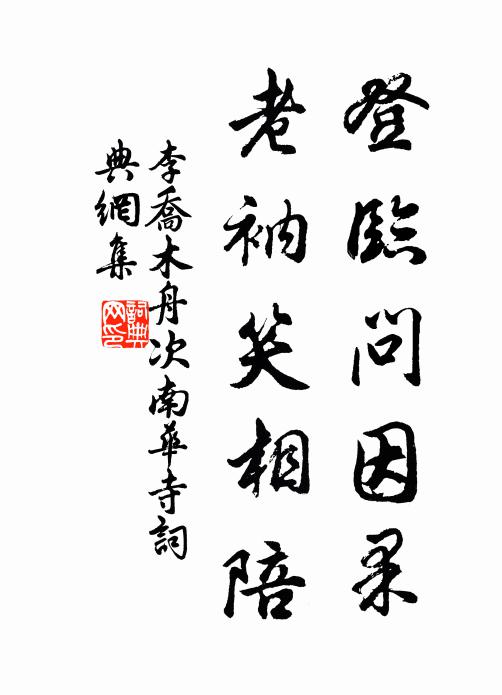 登臨問因果
老衲笑相陪
李喬木舟次南華寺詞
典網集
詞典
网印